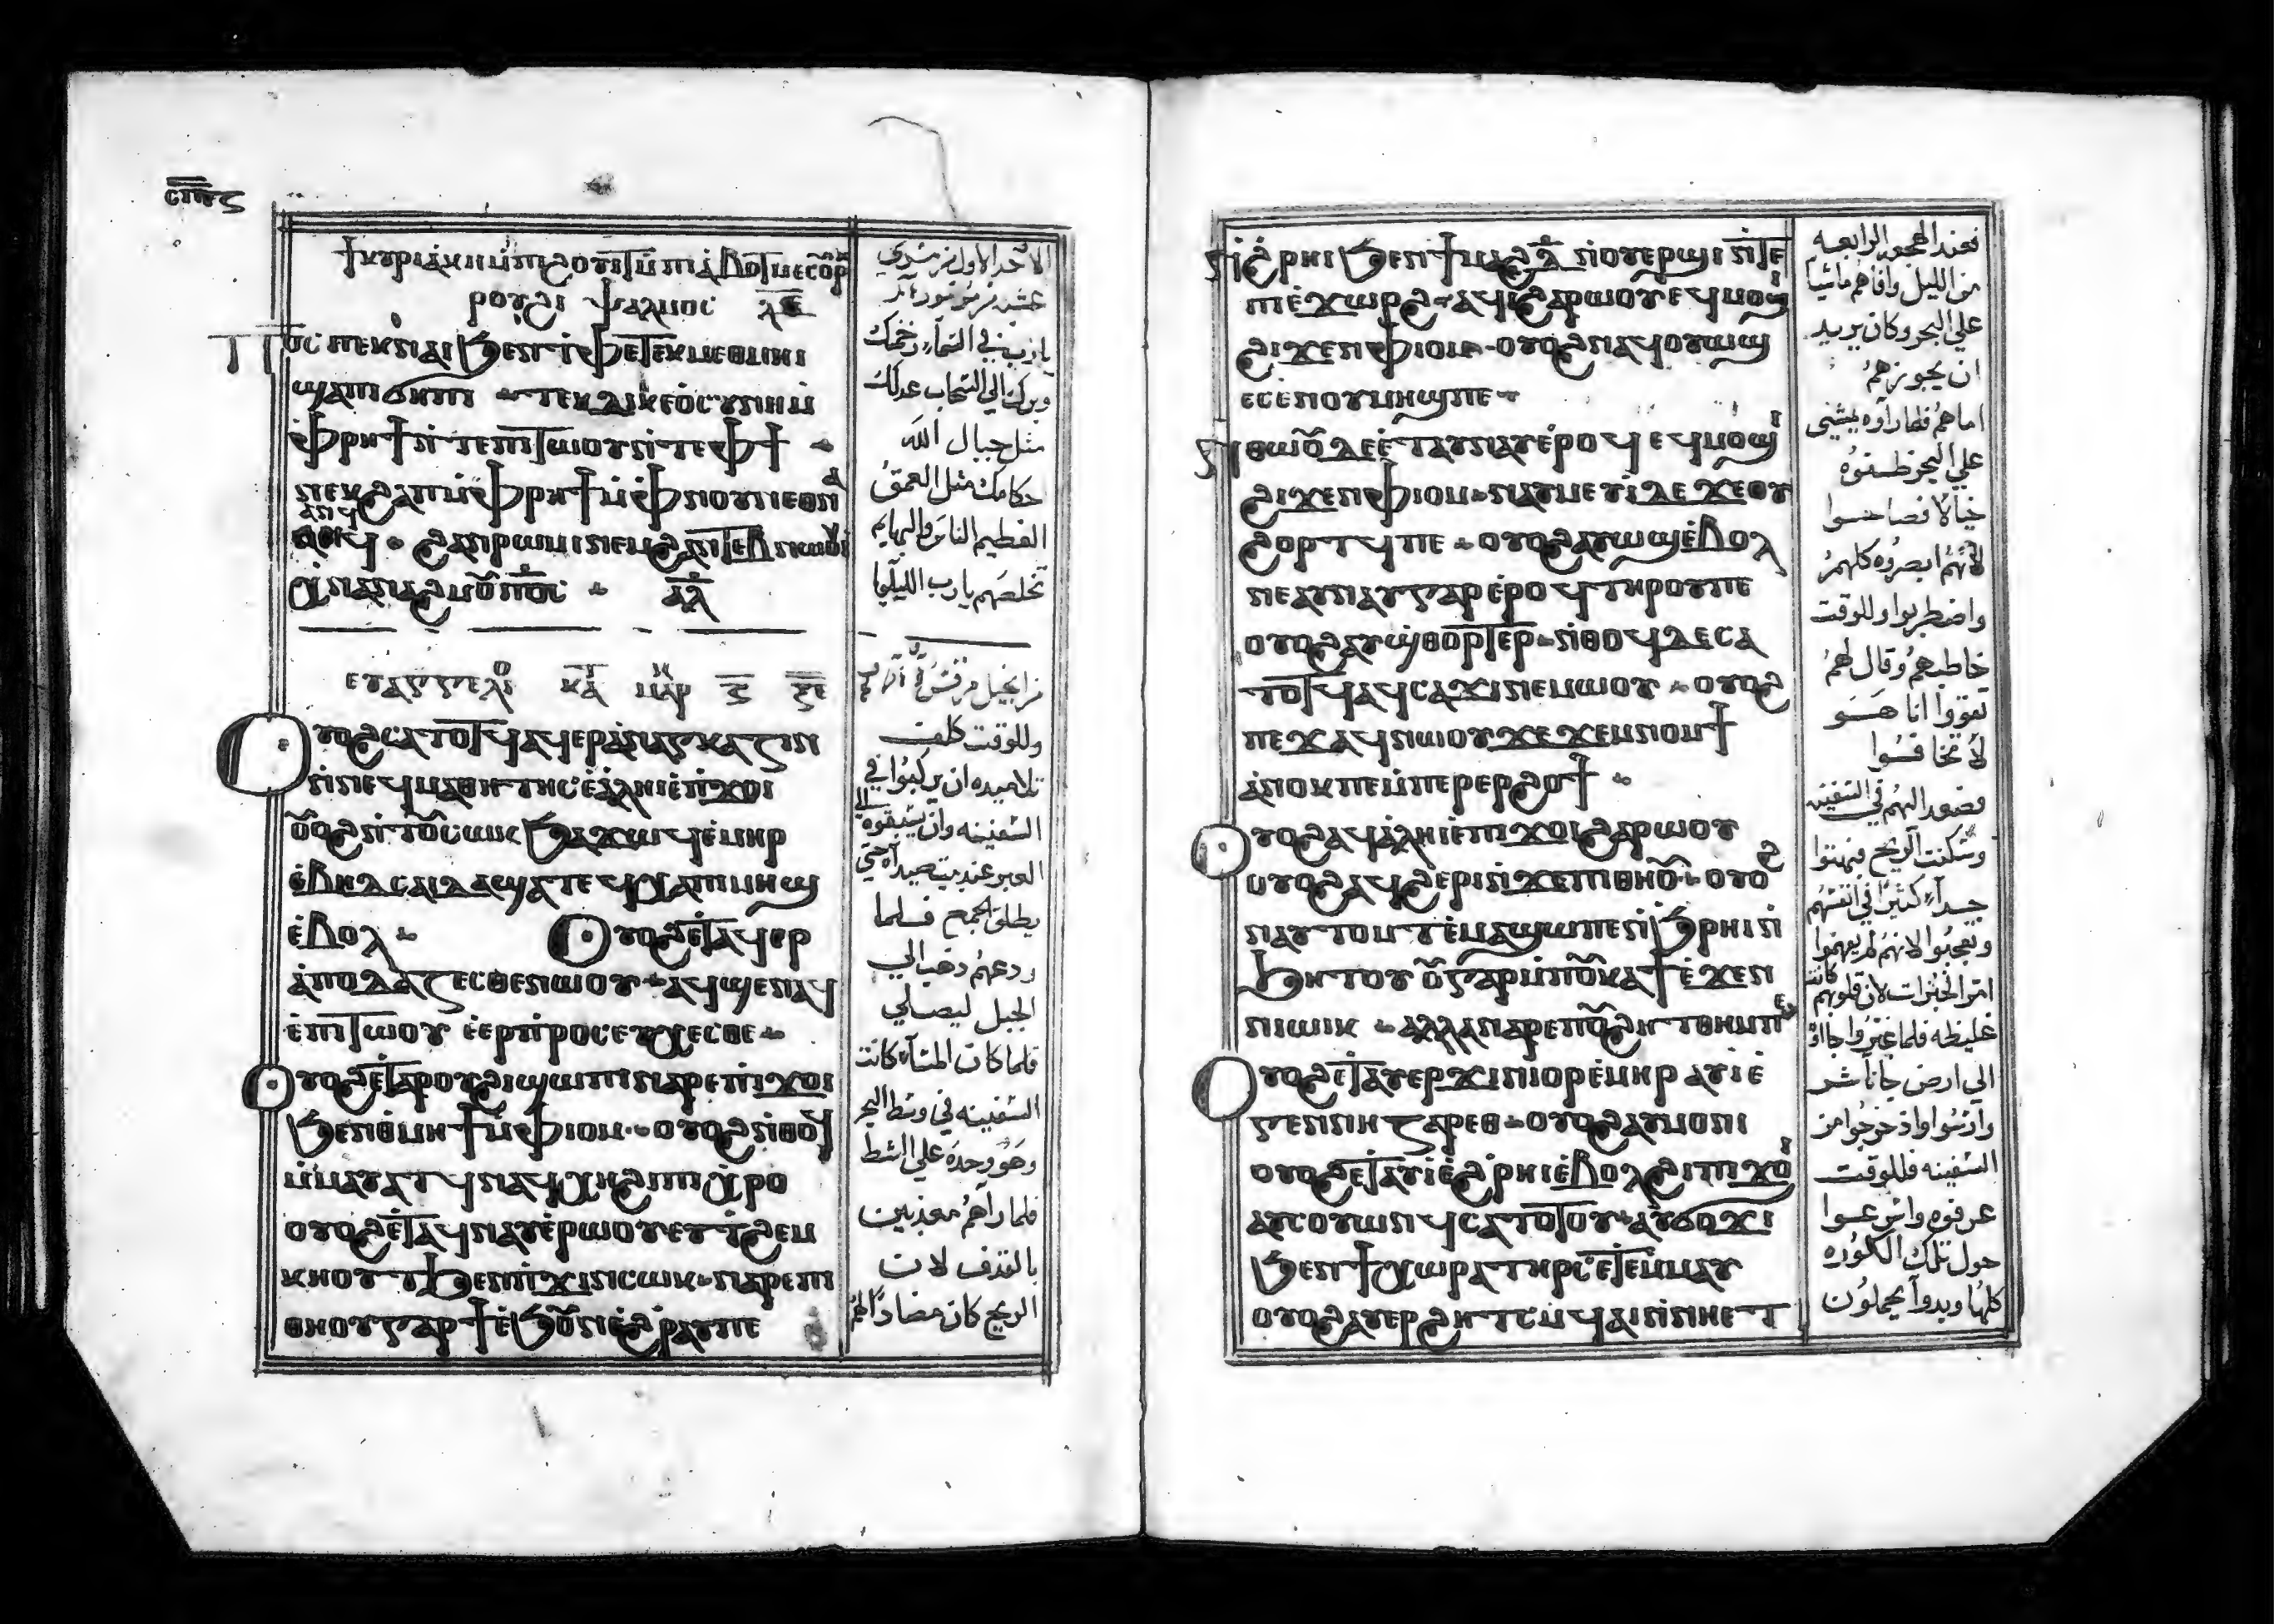 ϯⲕⲩⲣⲓⲁⲕⲏ ⲙ̀ⲙⲁϩⲟⲩⲓϯ ⲙ̀ⲡⲓⲁ̀ⲃⲟⲧ ⲙⲉⲥⲟⲣⲏ
ⲣⲟⲩϩⲓ ⲯⲁⲗⲙⲟⲥ ⲗⲉ
ⲡϭⲥ ⲡⲉⲕⲛⲁⲓ ϧⲉⲛ ⲧ̀ⲫⲉ ⲧⲉⲕⲙⲉⲑⲙⲏⲓ
ϣⲁ ⲛⲓϭⲏⲡⲓ ⲧⲉⲕⲇⲓⲕⲉⲟⲥⲩⲛⲏ ⲙ̀
ⲫⲣⲏϯ ⲛ̀ⲧⲉ ⲛⲓⲧⲱⲟⲩ ⲛ̀ⲧⲉ ⲫϯ
ⲛⲉⲕϩⲁⲡ ⲙ̀ⲫⲣⲏϯ ⲙ̀ⲫⲛⲟⲩⲛ ⲉⲑⲛⲁ
ϩⲁⲛⲣⲱⲙⲓ ⲛⲉⲙ ϩⲁⲛⲧⲉⲃⲛⲱⲟⲩⲓ
ⲭⲛⲁⲛⲁϩⲙⲟⲩ ⲡⲟⲥ ⲁⲗ
ⲉⲩⲁⲅⲅⲉⲗⲓⲟ ⲕⲁⲧⲁ ⲙⲁⲣⲕ ⲝ ⲝⲉ
ⲟⲩⲟϩ ⲥⲁⲧⲟⲧϥ ⲁϥⲉⲣⲁⲛⲁⲅⲕⲁⲍⲓⲛ
ⲛ̀ⲛⲉϥⲙⲁⲑⲏⲧⲏⲥ ⲉ̀ⲁ̀ⲗⲏⲓ ⲉ̀ⲡ̀ϫⲟⲓ
ⲟⲩⲟϩ ⲛ̀ⲧⲟⲩⲥⲱⲕ ϧⲁϫⲱϥ ⲉ̀ⲙⲏⲣ
ⲉ̀ⲃⲏⲇⲥⲁⲓⲇⲁ ϣⲁⲧⲉϥⲭⲁ ⲡⲓⲙⲏϣ
ⲉ̀ⲃⲟⲗ ⲟⲩⲟϩ ⲉⲧⲁϥⲉⲣ
ⲁ̀ⲡⲟⲇⲁⲍⲉⲥⲑⲉ ⲛⲱⲟⲩ ⲁϥϣⲉ ⲛⲁϥ
ⲉ̀ⲡⲓⲧⲱⲟⲩ ⲉ̀ⲉⲣⲡ̀ⲣⲟⲥⲉⲩⲭⲉⲥⲑⲉ
ⲟⲩⲟϩ ⲉ̀ⲧⲁ ⲣⲟⲩϩⲓ ϣⲱⲡⲓ ⲛⲁⲣⲉ ⲡⲓϫⲟⲓ
ϧⲉⲛ ⲑⲙⲏϯ ⲙ̀ⲫⲓⲟⲙ ⲟⲩⲟϩ ⲛ̀ⲑⲟϥ
ⲙ̀ⲙⲁⲩⲁⲧϥ ⲛⲁϥⲭⲏ ϩⲓ ⲡⲓⲭⲣⲟ
ⲟⲩⲟϩ ⲉ̀ⲧⲁϥⲛⲁⲩ ⲉ̀ⲣⲱⲟⲩ ⲉⲩⲧ̀ϩⲉⲙ
ⲕⲏⲟⲩⲧ ϧⲉⲛ ⲡ̀ϫⲓⲛⲥⲱⲕ ⲛⲁⲣⲉ ⲡⲓ
ⲑⲏⲟⲩ ⲅⲁⲣ ϯ ⲉ̀ϧⲟⲩⲛ ⲉ̀ϩⲣⲁⲩ ⲡⲉ
من انجيل مرقس
وللوقت كلف
تلاميذه ان يركبوا في
السفينه وان يسبقوه الى
العبر عند بيت صيدا حتى
يطلق الجمع فلما
ودعهم ذهب الى
الجبل ليصلي
فلما كان المساء كانت
السفينه في وسط البحر
وهو وحده علي الشط
فلما راهم معذبين
بالقذف لان
الريح كان مضادا لهم
ⲛ̀ϩ̀ⲣⲏⲓ ϧⲉⲛ ϯⲙⲁϩⲇ ⲛⲟⲩⲉⲣϣⲓ ⲛ̀ⲧⲉ
ⲡⲓⲉ̀ϫⲱⲣϩ ⲁϥⲓ̀ ϩⲁⲣⲱⲟⲩ ⲉϥⲙⲟϣⲓ
ϩⲓϫⲉⲛ ⲫⲓⲟⲙ ⲟⲩⲟϩ ⲛⲁϥⲟⲩⲱϣ
ⲉⲥⲉⲛⲟⲩⲙⲏϣ ⲡⲉ
ⲛ̀ⲑⲱⲟⲩ ⲇⲉ ⲉ̀ⲧⲁⲩⲛⲁⲩ ⲉ̀ⲣⲟϥ ⲉϥⲙⲟϣⲓ
ϩⲓϫⲉⲛ ⲫⲓⲟⲙ ⲛⲁⲩⲙⲉⲩⲓ̀ ⲇⲉ ϫⲉ ⲟⲩ
ϩⲟⲣⲧϥ ⲡⲉ ⲟⲩⲟϩ ⲁⲩⲱϣ ⲉ̀ⲃⲟⲗ
ⲛⲉⲁⲩⲛⲁⲩ ⲅⲁⲣ ⲉ̀ⲣⲟϥ ⲧⲏⲣⲟⲩ ⲡⲉ
ⲟⲩⲟϩ ⲁⲩϣ̀ⲑⲟⲣⲧⲉⲣ ⲛ̀ⲑⲟϥ ⲇⲉ ⲥⲁ
ⲧⲟⲧϥ ⲁϥⲥⲁϫⲓ ⲛⲉⲙⲱⲟⲩ ⲟⲩⲟϩ
ⲡⲉϫⲁϥ ⲛⲱⲟⲩ ϫⲉ ϫⲉⲙⲛⲟⲙϯ
ⲁ̀ⲛⲟⲕ ⲡⲉ ⲙ̀ⲡⲉⲣⲉⲣϩⲟϯ
ⲟⲩⲟϩ ⲁϥⲁ̀ⲗⲏⲓ ⲉ̀ⲡⲓϫⲟⲓ ϩⲁⲣⲱⲟⲩ
ⲟⲩⲟϩ ⲁϥϩⲉⲣⲓ ⲛ̀ϫⲉ ⲡⲓⲑⲏⲟⲩ ⲟⲩⲟϩ
ⲛⲁⲩⲧⲟⲙⲧ ⲉ̀ⲙⲁϣⲱ ⲡⲉ ⲛ̀ϧ̀ⲣⲏⲓ ⲛ̀
ϧⲏⲧⲟⲩ ⲟⲩ ⲅⲁⲣ ⲙ̀ⲡⲟⲩⲕⲁϯ ⲉ̀ϫⲉⲛ
ⲛⲓⲱⲓⲕ ⲁⲗⲗⲁ ⲛⲁⲣⲉ ⲡⲟⲩϩⲏⲧ ⲑⲏⲙ ⲡⲉ
ⲟⲩⲟϩ ⲉ̀ⲧⲁⲩⲉⲣϫⲓⲛⲓⲟⲣ ⲉ̀ⲙⲏⲣ ⲁⲩⲓ̀ ⲉ̀
ⲅⲉⲛⲛⲏⲍⲁⲣⲉⲑ ⲟⲩⲟϩ ⲁⲩⲙⲟⲛⲓ
ⲟⲩⲟϩ ⲉⲧⲁⲩⲓ̀ ⲉ̀ϩ̀ⲣⲏⲓ ⲉ̀ⲃⲟⲗϩⲓ ⲡⲓϫⲟⲓ
ⲁⲩⲥⲟⲩⲱⲛϥ ⲥⲁⲧⲟⲧⲟⲩ ⲁⲩϭⲟϫⲓ
ϧⲉⲛ ϯⲭⲱⲣⲁ ⲧⲏⲣⲥ ⲉ̀ⲧⲉⲙⲙⲁⲩ
ⲟⲩⲟϩ ⲁⲩⲉⲣϩⲏⲧⲥ ⲙ̀ϥⲁⲓ ⲛ̀ⲛⲏⲉⲧ
فعند الهجعه الرابعه
من الليل وافاهم ماشيا
علي البحر وكان يريد
ان يجوزهم
اما هم فلما راوه يمشي
علي البحر ظنوه
خيالا فصاحوا
لانهم ابصروه كلهم
واضطربوا وللوقت
خاطبهم وقال لهم
تقووا انا هو
لا تخافوا
فصعد اليهم في السفينه
وسكنت الريح فبهتوا
جدا كثيرا في انفسهم
وتعجبوا لانهم لم يفهموا
امر الخبزات لان قلوبهم كانت
غليظه فلما عبروا جاؤا
الي ارض جاناشر
وارسوا واذ خرجوا من
السفينه فللوقت
عرفوه واسرعوا
حول تلك الكوره
كلها وبدوا يحملون